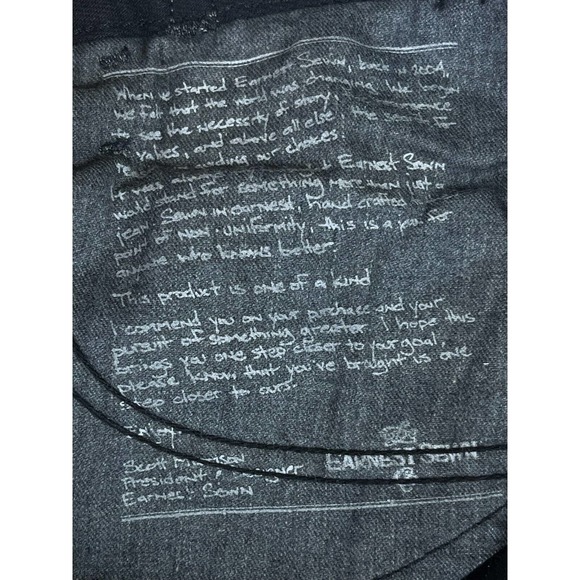 When we started Earnest Sewn, back in 2004,
we felt that the world was changing. We began
to see the necessity of story,
values, and above all else the search for
guiding our choices.
It was about Earnest Sewn
would stand for something more than just a
jean. Sewn in earnest, hand crafted
point of non-uniformity, this is a jean for
anyone who knows better.
This product is one of a kind
I commend you on your purchase and your
pursuit of something greater. I hope this
brings you one step closer to your goal,
please know, that you've brought us one
step closer to ours.
Enjoy.
Scott Morrison
President & Designer
Earnest Sewn
EARNEST SEWN